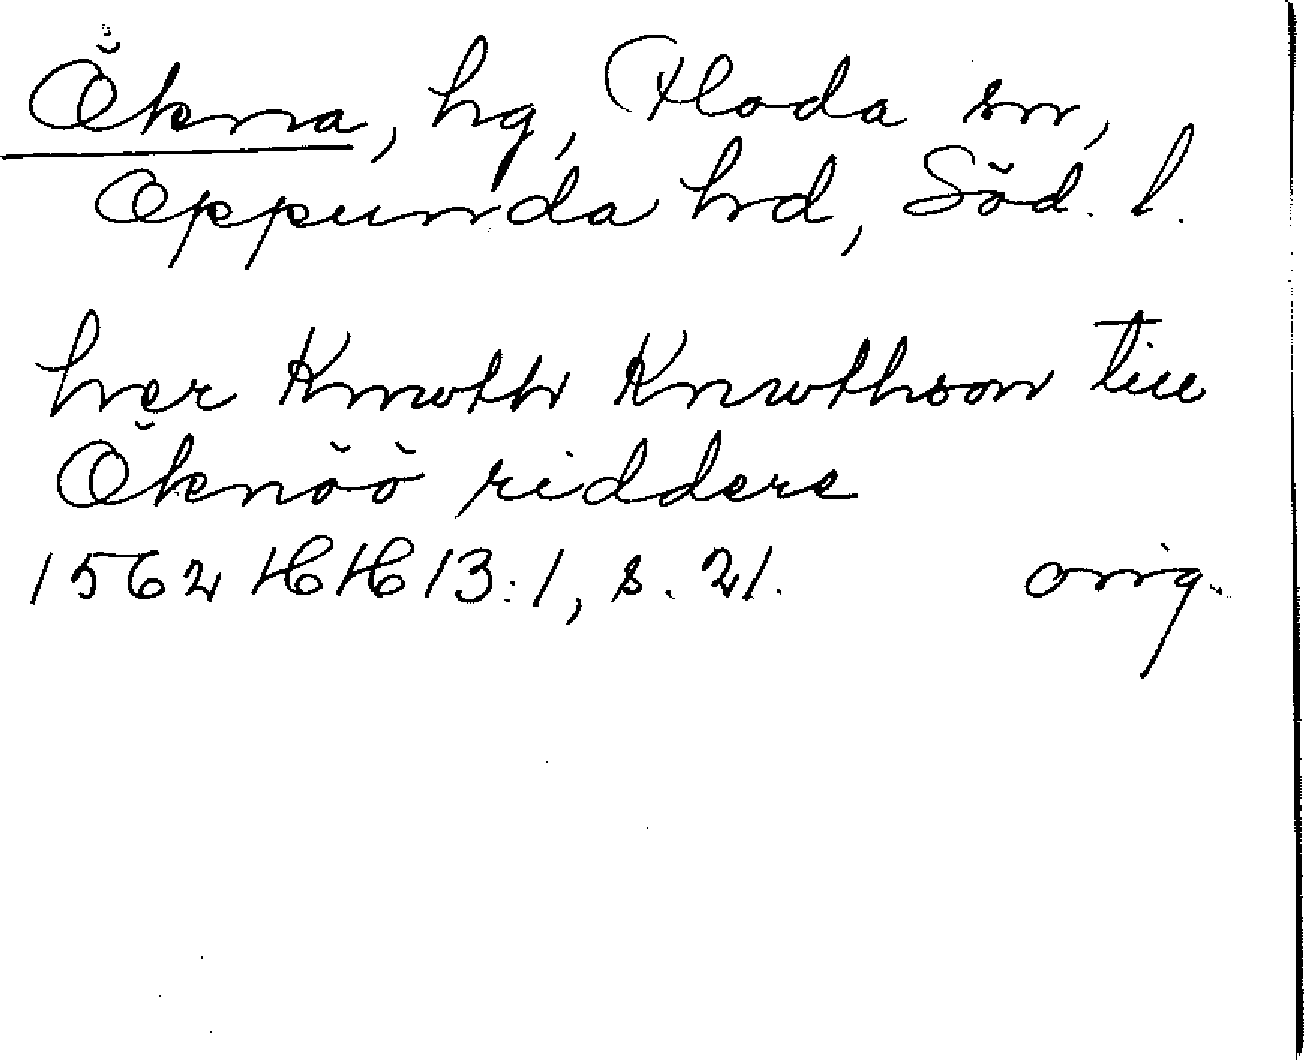 Ökna, hg, Floda sn,
Oppunda hd, Söd. l.
her Knwth Knwthson till
Öknöö riddere
1562 HH 13:1, s. 21. orig.